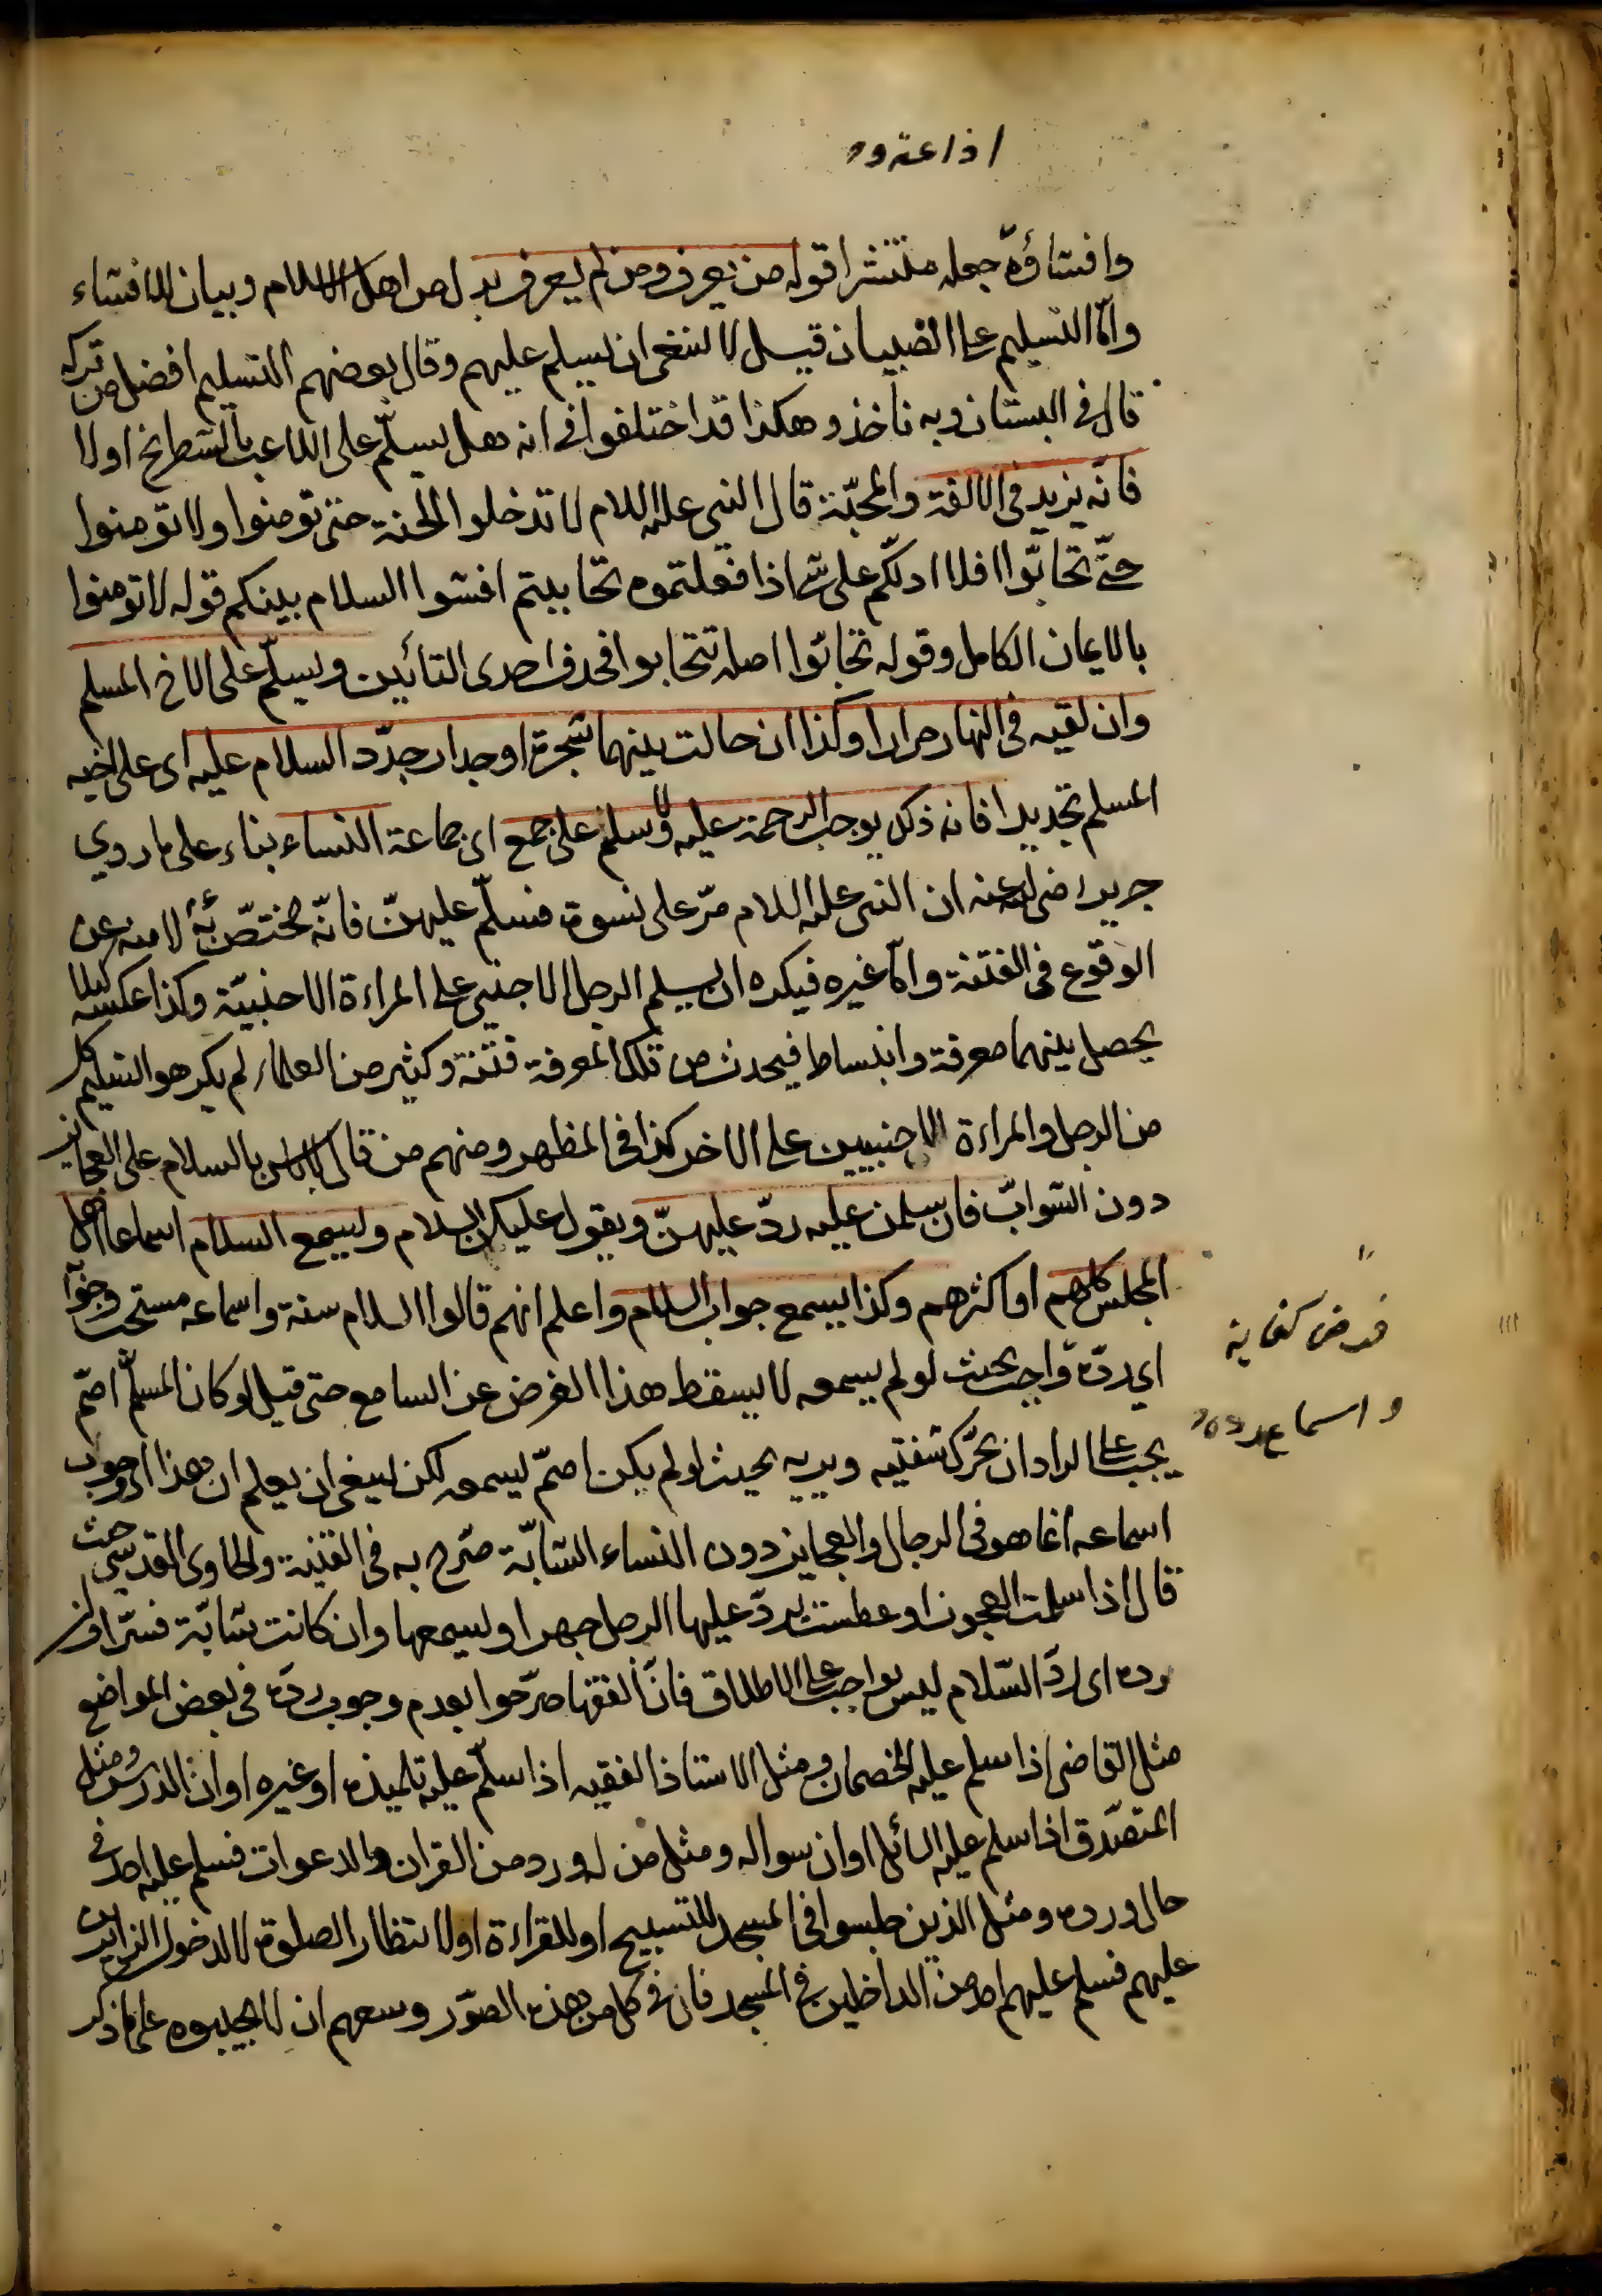 وافشاؤه جعله منتشرا قوله من يعرف ومن لم يعرف بدل من اهل الاسلام وبيان للافشاء
وامّا التسليم على الصبيان قيل لا ينبغى ان يسلم عليهم وقال بعضهم التسليم افضل من تركه
قال فى البستان وبه نأخذ وهكذا قد اختلفوا فى انه هل يسلّم على اللاعب بالشطرنج او لا
فانّه يزيد فى الالفة والمحبّة قال النبى عليه السلام لا تدخلوا الجنة حتى تؤمنوا ولا تؤمنوا
حتّى تحابّوا افلا ادلّكم على شئ اذا فعلتموه تحاببتم افشوا السلام بينكم قوله لا تؤمنوا
بالايمان الكامل وقوله تحابّوا اصله تتحابوا فحذف احدى التائين ويسلّم على الاخ المسلم
وان لقيه فى النهار مرارا وكذا ان حالت بينهما شجرة او جدار جدّد السلام عليه اى على اخيه
المسلم تجديدا فانه ذكر يوجب الرحمة عليه ولا يسلم على جمع اى جماعة النساء بناء على ما روي
جرير رضى الله عنه ان النبى عليه السلام مرّ على نسوة فسلّم عليهنّ فانّه مختصّ به لامنه عن
الوقوع فى الفتنة وامّا غيره فيكره ان يسلم الرجل الاجنبى على المراءة الاجنبيّة وكذا عكسه لئلا
يحصل بينهما معرفة وانبساط فيحدث من تلك المعرفة فتنة وكثير من العلماء لم يكرهوا تسليم كل
من الرجل والمراءة الاجنبيين على الاخر كذا فى المظهر ومنهم من قال لا باس بالسلام على العجايز
دون الشوابّ فان سلمن عليه ردّ عليهنّ ويقول عليكن السلام ويسمع السلام اسماعا اهل
المجلس كلهم او اكثرهم وكذا يسمع جواب السلام واعلم انهم قالوا السلام سنة واسماعه مستحب وجوابه
اي ردّه واجب بحيث لو لم يسمعه لا يسقط هذا الفرض عن السامع حتى قيل لو كان المسلّم اصمّ
فرض كفاية
واسماع رده
يجب على الراد ان يحرّك شفتيه ويريه بحيث لو لم يكن اصمّ ليسمعه لكن ينبغى ان يعلم ان هذا اى وجوب
اسماعه انما هو فى الرجال والعجايز دون النساء الشابّة صرّح به فى القنية والحاوى القدسى حيث
قال اذا سلمت العجوز او عطست يردّ عليها الرجل جهرا ويسمعها وان كانت شابّة فسرّا ولان
رده اى ردّ السّلام ليس بواجب على الاطلاق فانّ الفقها صرّحوا بعدم وجوب ردّه فى بعض المواضع
مثل القاضى اذا سلم عليه الخصمان ومثل الاستاذ الفقيه اذا سلّم عليه تلميذه او غيره اوان الدرس ومثل
المتصدّق اذا سلم عليه السائل اوان سواله ومثل من له ورد من القران والدعوات فسلم عليه احد فى
حال ورده ومثل الذين جلسوا فى المسجد للتسبيح او للقراءة او لانتظار الصلوة لا لدخول الزايرين
عليهم فسلم عليهم احد من الداخلين فى المسجد فان فى كل من هذه الصوّر وسعهم ان لا يجيبوه على ما ذكر